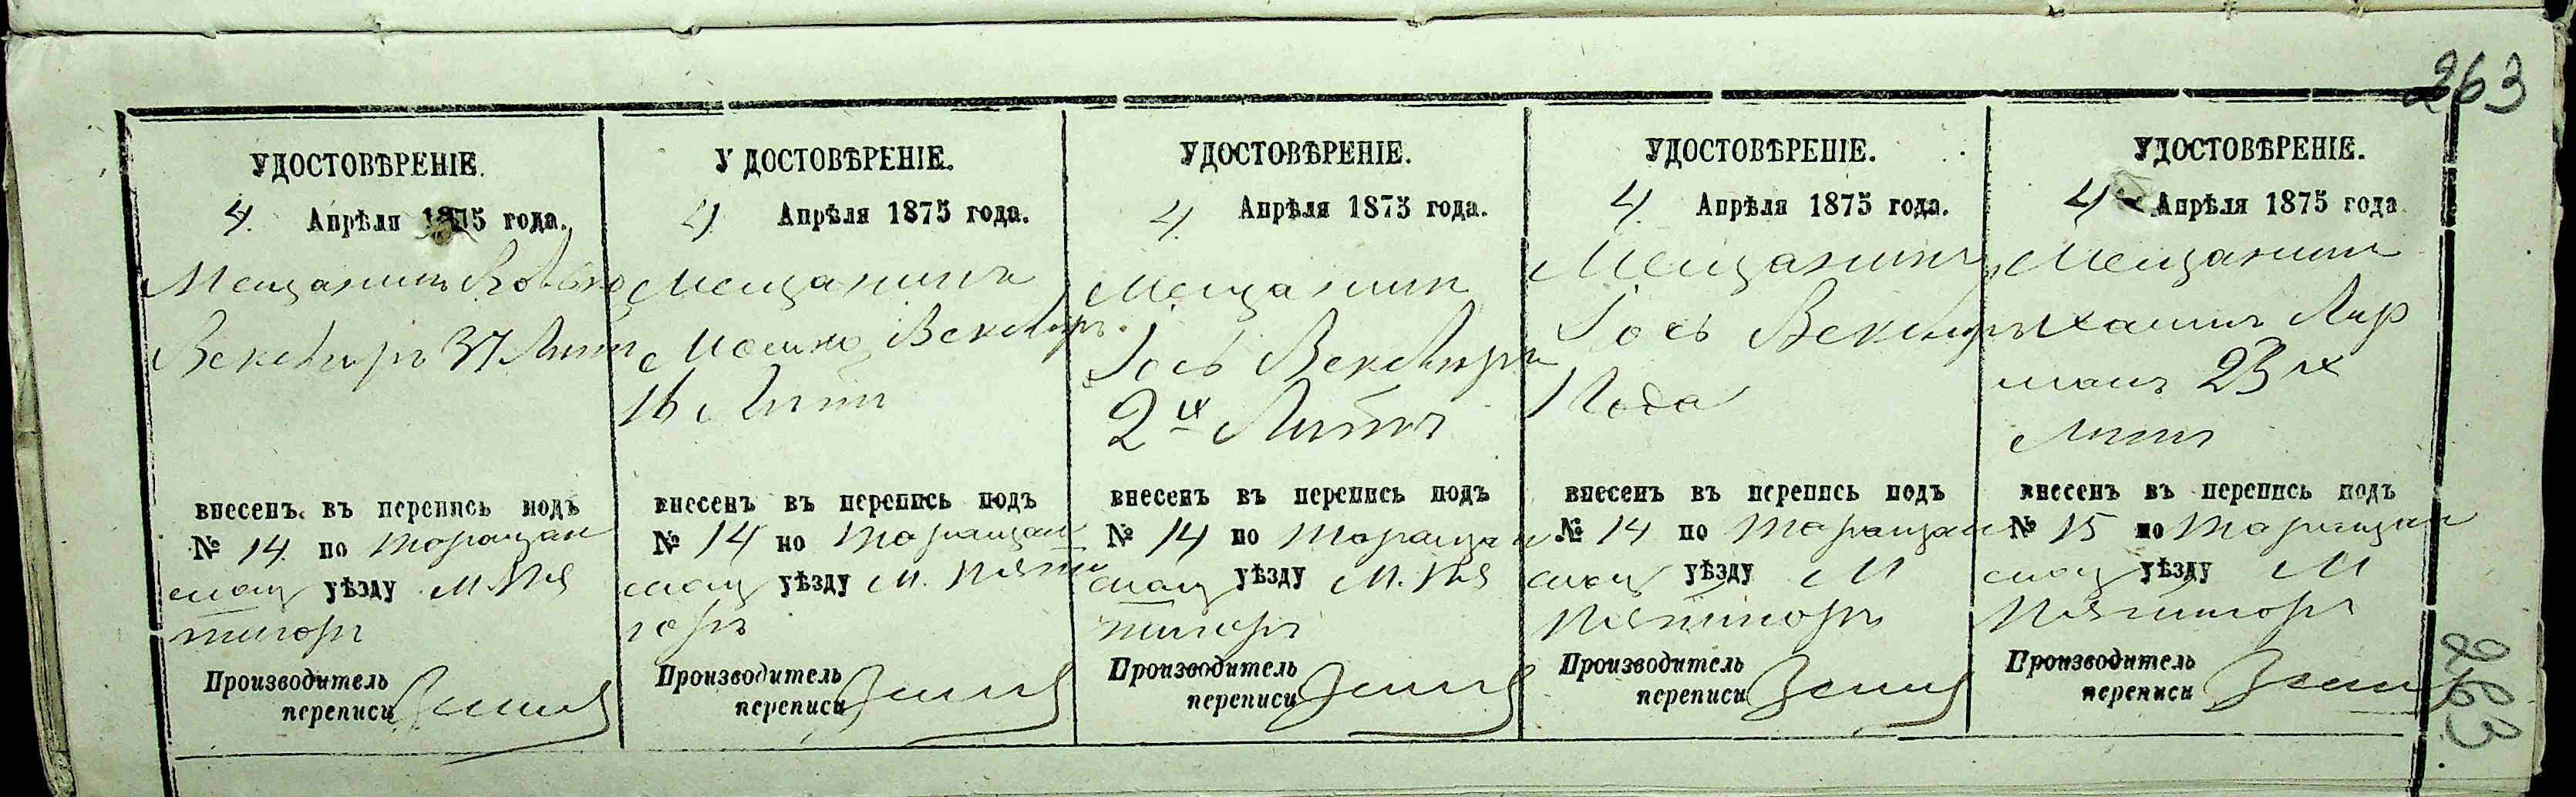 263
УДОСТОВѢРЕНІЕ.
4. Апрѣля 1875 года.
Мещанинъ
Векслеръ 37 Лѣтъ
внесенъ въ перепись подъ
№ 14. по Таращан
скому уѣзду М. Пя
тигоръ
Производитель
переписи
УДОСТОВѢРЕНІЕ.
4. Апрѣля 1875 года.
Мещанинъ
Мошко Векслеръ
16 Лѣтъ
внесенъ въ перепись подъ
№ 14 по Таращан
скому уѣзду М. Пяти
горъ
Производитель
переписи
УДОСТОВѢРЕНІЕ.
4. Апрѣля 1875 года.
Мещанинъ
Іось Векслеръ
2х Лѣтъ
внесенъ въ перепись подъ
№ 14 по Таращан
скому уѣзду М. Пя
тигоръ
Производитель
переписи
УДОСТОВѢРЕНІЕ.
4. Апрѣля 1875 года.
Мещанинъ
Іось Векслеръ
1 Года
внесенъ въ перепись подъ
№ 14 по Таращан
скому уѣзду М
Пятигоръ
Производитель
переписи
УДОСТОВѢРЕНІЕ.
4 Апрѣля 1875 года
Мещанинъ
Хаимъ Лер
манъ 23хъ
Лѣтъ
внесенъ въ перепись подъ
№ 15 по Таращан
скому уѣзду М
Пятигоръ
Производитель
переписи
263